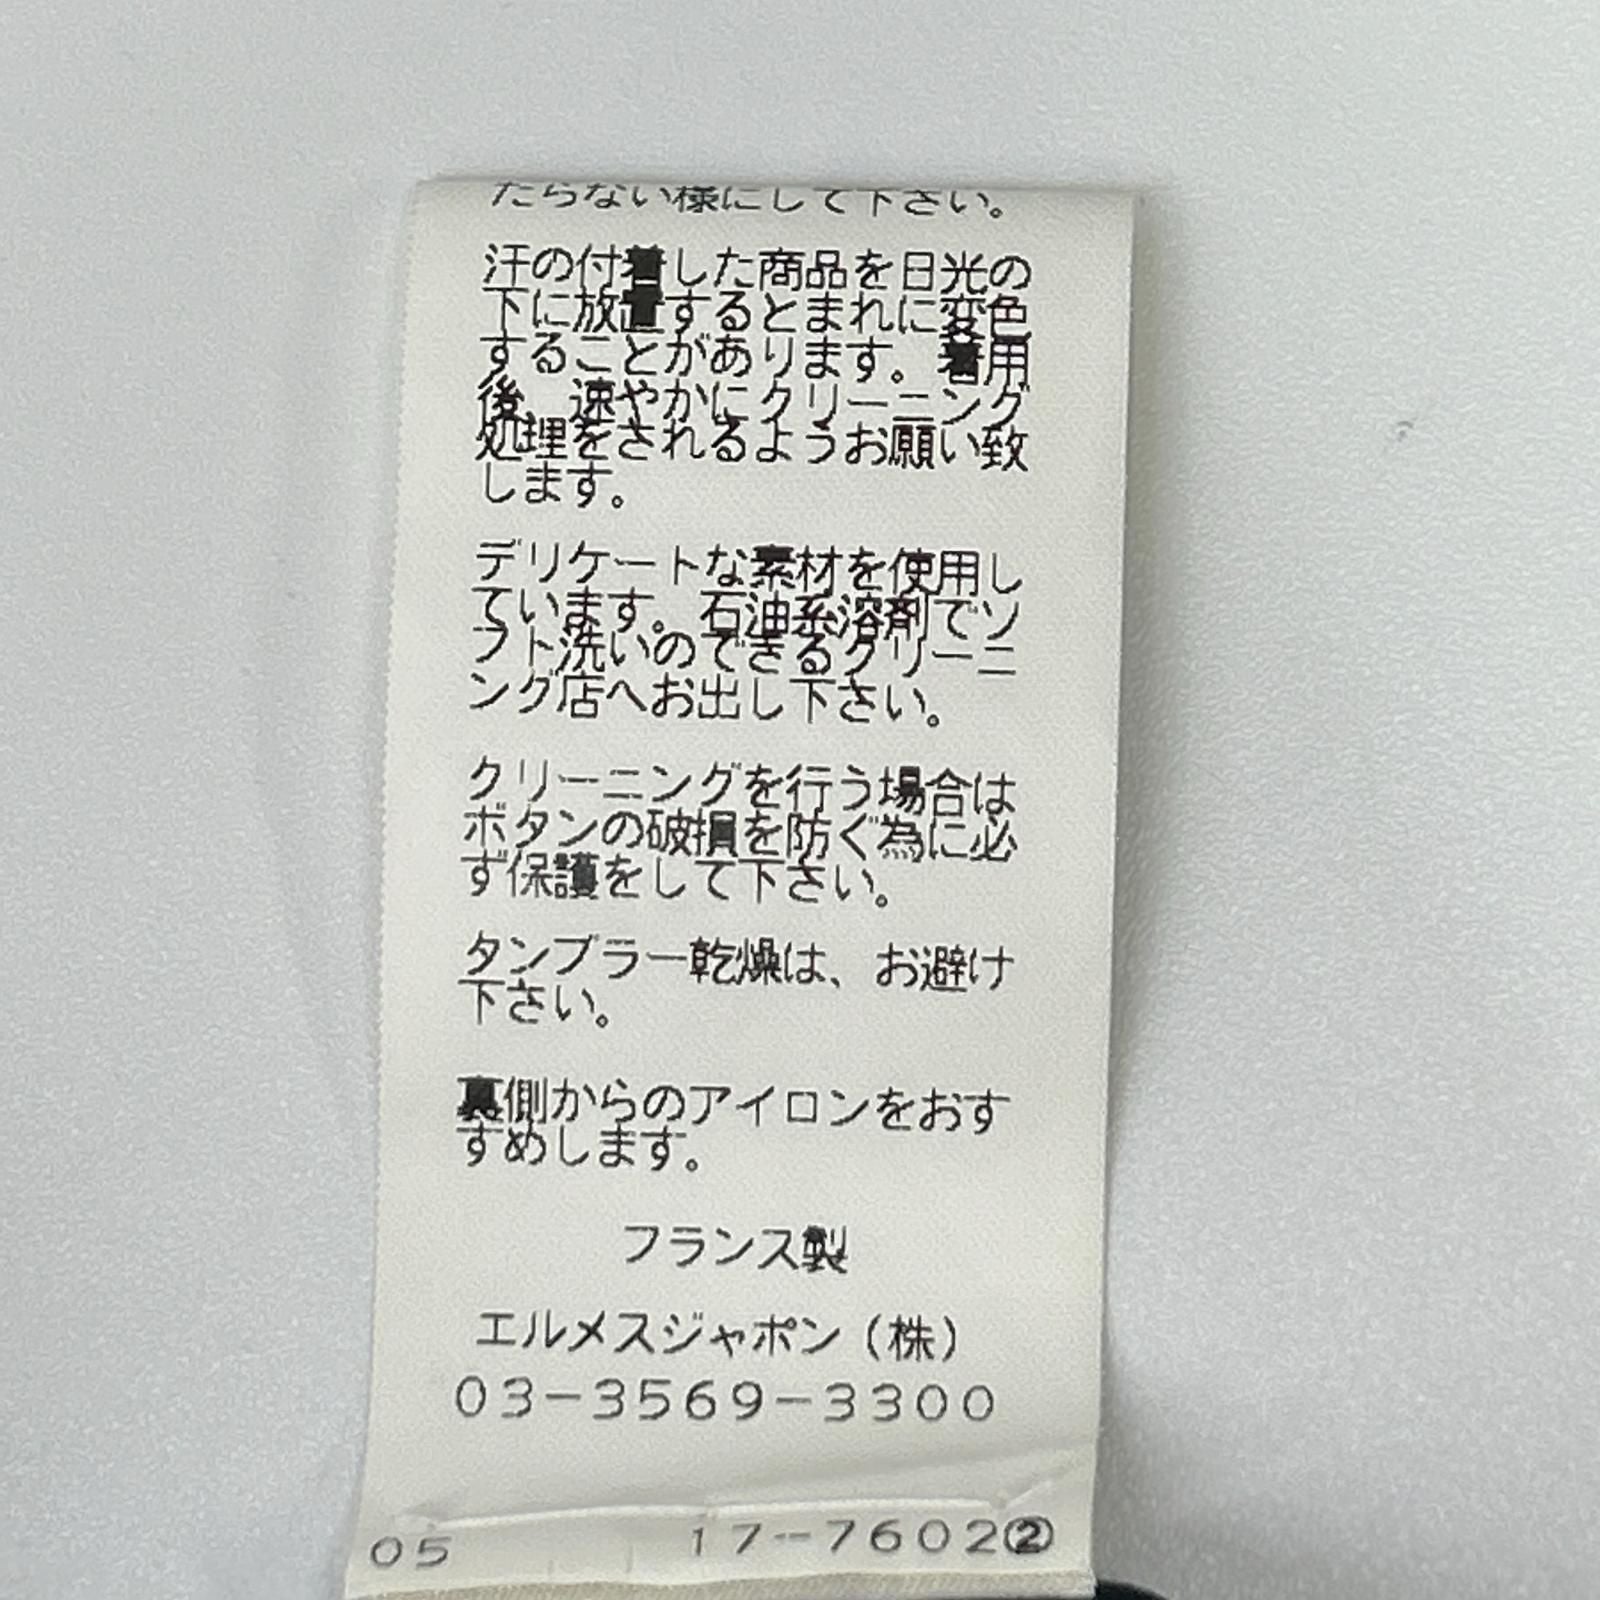 たらない様にして下さい。
汗の付着した商品を日光の
下に放置するとまれに変色
することがあります。着用
後、速やかにクリーニング
処理をされるようお願い致
します。
デリケートな素材を使用し
ています。石油系溶剤でソ
フト洗いのできるクリーニ
ング店へお出し下さい。
クリーニングを行う場合は
ボタンの破損を防ぐ為に必
ず保護をして下さい。
タンブラー乾燥は、お避け
下さい。
裏側からのアイロンをおす
すめします。
フランス製
エルメスジャポン(株)
03-3569-3300
05 17-7602②